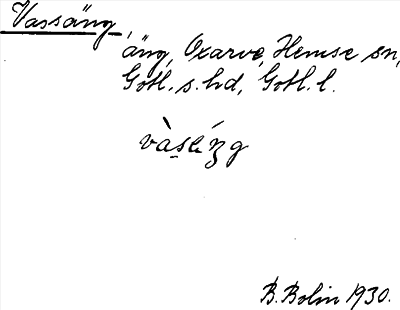 Vassäng,
äng, Oxarve, Hemse sn,
Gotl. s. hd, Gotl. l.
B. Bolin 1930.